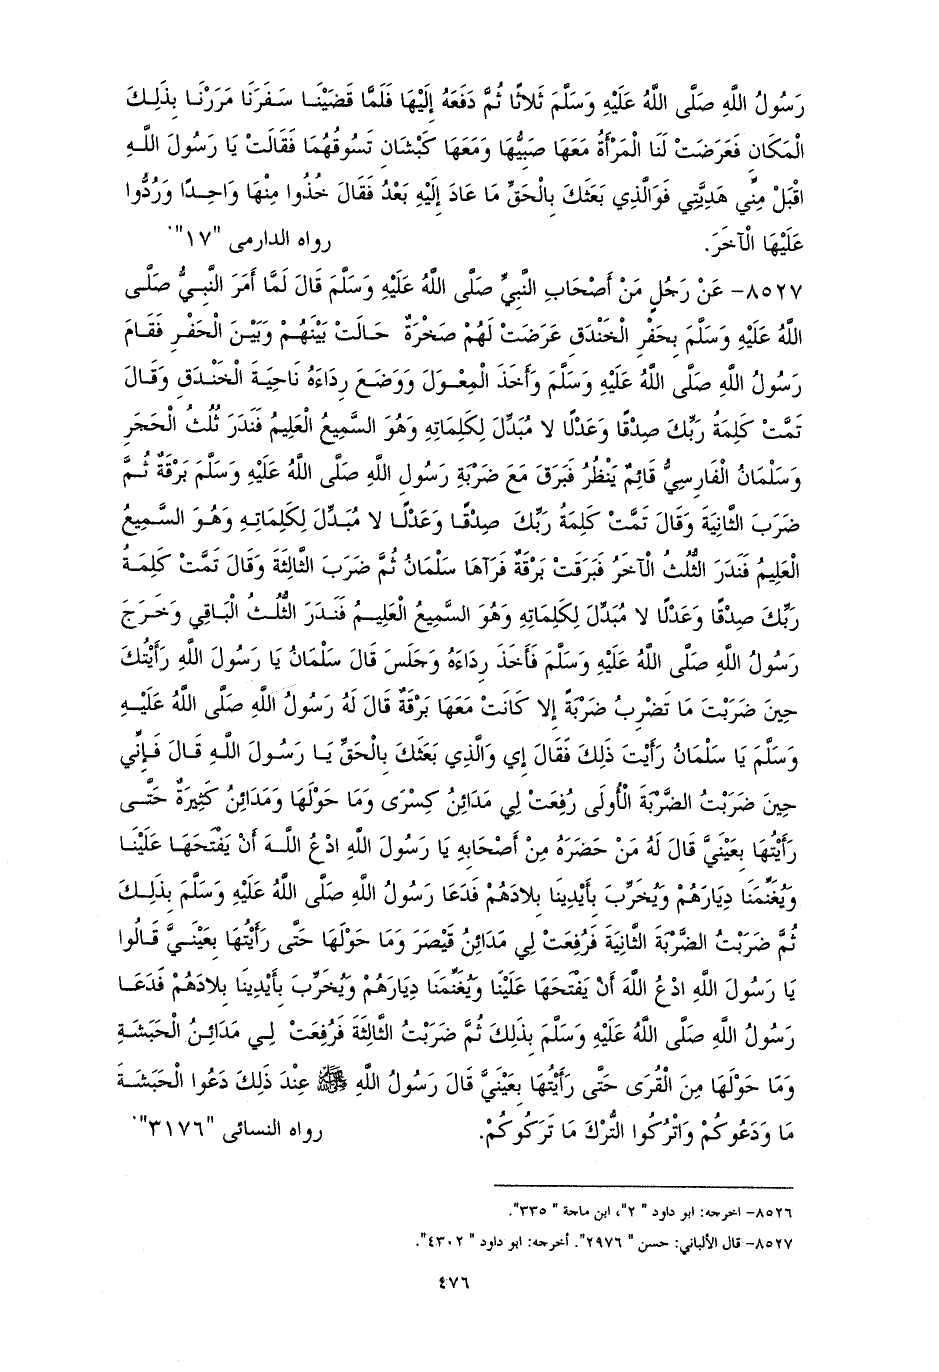 رَسُولُ اللَّهِ صَلَّى اللَّهُ عَلَيْهِ وَسَلَّمَ ثَلَاثًا ثُمَّ دَفَعَهُ إِلَيْهَا فَلَمَّا قَضَيْنَا سَفَرَنَا مَرَرْنَا بِذَلِكَ
الْمَكَانِ فَعَرَضَتْ لَنَا الْمَرْأَةُ مَعَهَا صَبِيُّهَا وَمَعَهَا كَبْشَانِ تَسُوقُهُمَا فَقَالَتْ يَا رَسُولَ اللَّهِ
اقْبَلْ مِنِّي هَدِيَّتِي فَوَالَّذِي بَعَثَكَ بِالْحَقِّ مَا عَادَ إِلَيْهِ بَعْدُ فَقَالَ خُذُوا مِنْهَا وَاحِدًا وَرُدُّوا
عَلَيْهَا الْآخَرَ. رواه الدارمى "١٧".
٨٥٢٧- عَنْ رَجُلٍ مَنْ أَصْحَابِ النَّبِيِّ صَلَّى اللَّهُ عَلَيْهِ وَسَلَّمَ قَالَ لَمَّا أَمَرَ النَّبِيُّ صَلَّى
اللَّهُ عَلَيْهِ وَسَلَّمَ بِحَفْرِ الْخَنْدَقِ عَرَضَتْ لَهُمْ صَخْرَةٌ حَالَتْ بَيْنَهُمْ وَبَيْنَ الْحَفْرِ فَقَامَ
رَسُولُ اللَّهِ صَلَّى اللَّهُ عَلَيْهِ وَسَلَّمَ وَأَخَذَ الْمِعْوَلَ وَوَضَعَ رِدَاءَهُ نَاحِيَةَ الْخَنْدَقِ وَقَالَ
تَمَّتْ كَلِمَةُ رَبِّكَ صِدْقًا وَعَدْلًا لا مُبَدِّلَ لِكَلِمَاتِهِ وَهُوَ السَّمِيعُ الْعَلِيمُ فَنَدَرَ ثُلُثُ الْحَجَرِ
وَسَلْمَانُ الْفَارِسِيُّ قَائِمٌ يَنْظُرُ فَبَرَقَ مَعَ ضَرْبَةِ رَسُولِ اللَّهِ صَلَّى اللَّهُ عَلَيْهِ وَسَلَّمَ بَرْقَةٌ ثُمَّ
ضَرَبَ الثَّانِيَةَ وَقَالَ تَمَّتْ كَلِمَةُ رَبِّكَ صِدْقًا وَعَدْلًا لا مُبَدِّلَ لِكَلِمَاتِهِ وَهُوَ السَّمِيعُ
الْعَلِيمُ فَنَدَرَ الثُّلُثُ الْآخَرُ فَبَرَقَتْ بَرْقَةٌ فَرَآهَا سَلْمَانُ ثُمَّ ضَرَبَ الثَّالِثَةَ وَقَالَ تَمَّتْ كَلِمَةُ
رَبِّكَ صِدْقًا وَعَدْلًا لا مُبَدِّلَ لِكَلِمَاتِهِ وَهُوَ السَّمِيعُ الْعَلِيمُ فَنَدَرَ الثُّلُثُ الْبَاقِي وَخَرَجَ
رَسُولُ اللَّهِ صَلَّى اللَّهُ عَلَيْهِ وَسَلَّمَ فَأَخَذَ رِدَاءَهُ وَجَلَسَ قَالَ سَلْمَانُ يَا رَسُولَ اللَّهِ رَأَيْتُكَ
حِينَ ضَرَبْتَ مَا تَضْرِبُ ضَرْبَةً إِلا كَانَتْ مَعَهَا بَرْقَةٌ قَالَ لَهُ رَسُولُ اللَّهِ صَلَّى اللَّهُ عَلَيْهِ
وَسَلَّمَ يَا سَلْمَانُ رَأَيْتَ ذَلِكَ فَقَالَ إِي وَالَّذِي بَعَثَكَ بِالْحَقِّ يَا رَسُولَ اللَّهِ قَالَ فَإِنِّي
حِينَ ضَرَبْتُ الضَّرْبَةَ الْأُولَى رُفِعَتْ لِي مَدَائِنُ كِسْرَى وَمَا حَوْلَهَا وَمَدَائِنُ كَثِيرَةٌ حَتَّى
رَأَيْتُهَا بِعَيْنَيَّ قَالَ لَهُ مَنْ حَضَرَهُ مِنْ أَصْحَابِهِ يَا رَسُولَ اللَّهِ ادْعُ اللَّهَ أَنْ يَفْتَحَهَا عَلَيْنَا
وَيُغَنِّمَنَا دِيَارَهُمْ وَيُخَرِّبَ بِأَيْدِينَا بِلادَهُمْ فَدَعَا رَسُولُ اللَّهِ صَلَّى اللَّهُ عَلَيْهِ وَسَلَّمَ بِذَلِكَ
ثُمَّ ضَرَبْتُ الضَّرْبَةَ الثَّانِيَةَ فَرُفِعَتْ لِي مَدَائِنُ قَيْصَرَ وَمَا حَوْلَهَا حَتَّى رَأَيْتُهَا بِعَيْنَيَّ قَالُوا
يَا رَسُولَ اللَّهِ ادْعُ اللَّهَ أَنْ يَفْتَحَهَا عَلَيْنَا وَيُغَنِّمَنَا دِيَارَهُمْ وَيُخَرِّبَ بِأَيْدِينَا بِلادَهُمْ فَدَعَا
رَسُولُ اللَّهِ صَلَّى اللَّهُ عَلَيْهِ وَسَلَّمَ بِذَلِكَ ثُمَّ ضَرَبْتُ الثَّالِثَةَ فَرُفِعَتْ لِي مَدَائِنُ الْحَبَشَةِ
وَمَا حَوْلَهَا مِنَ الْقُرَى حَتَّى رَأَيْتُهَا بِعَيْنَيَّ قَالَ رَسُولُ اللَّهِ ﷺ عِنْدَ ذَلِكَ دَعُوا الْحَبَشَةَ
مَا وَدَعُوكُمْ وَاتْرُكُوا التُّرْكَ مَا تَرَكُوكُمْ. رواه النسائى "٣١٧٦".
٨٥٢٦- اخرجه: ابو داود "٢"، ابن ماجة "٣٣٥".
٨٥٢٧- قال الألباني: حسن "٢٩٧٦". أخرجه: ابو داود "٤٣٠٢".
٤٧٦